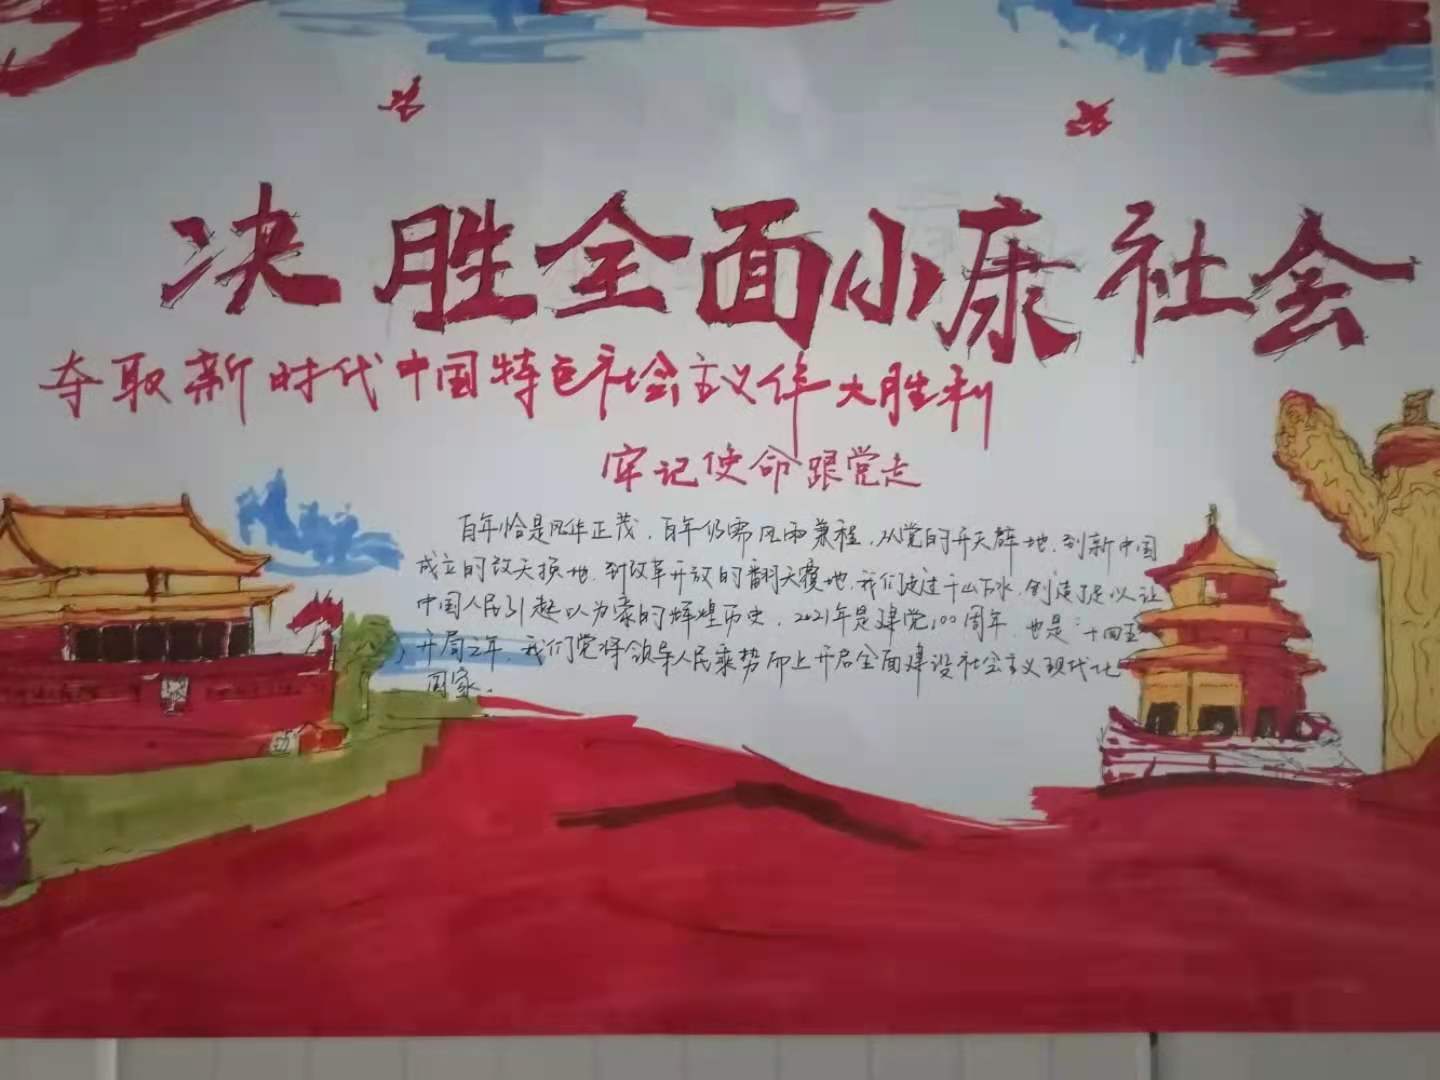 决胜全面小康社会
夺取新时代中国特色社会主义伟大胜利
牢记使命跟党走
百年恰是风华正茂，百年仍需风雨兼程，从党的开天辟地，到新中国
成立的改天换地，到改革开放的翻天覆地，我们走过千山万水，创造了足以让
中国人民引起以为豪的辉煌历史，2021年是建党100周年，也是“十四五
”开局之年，我们党将领导人民乘势而上开启全面建设社会主义现代化
国家。